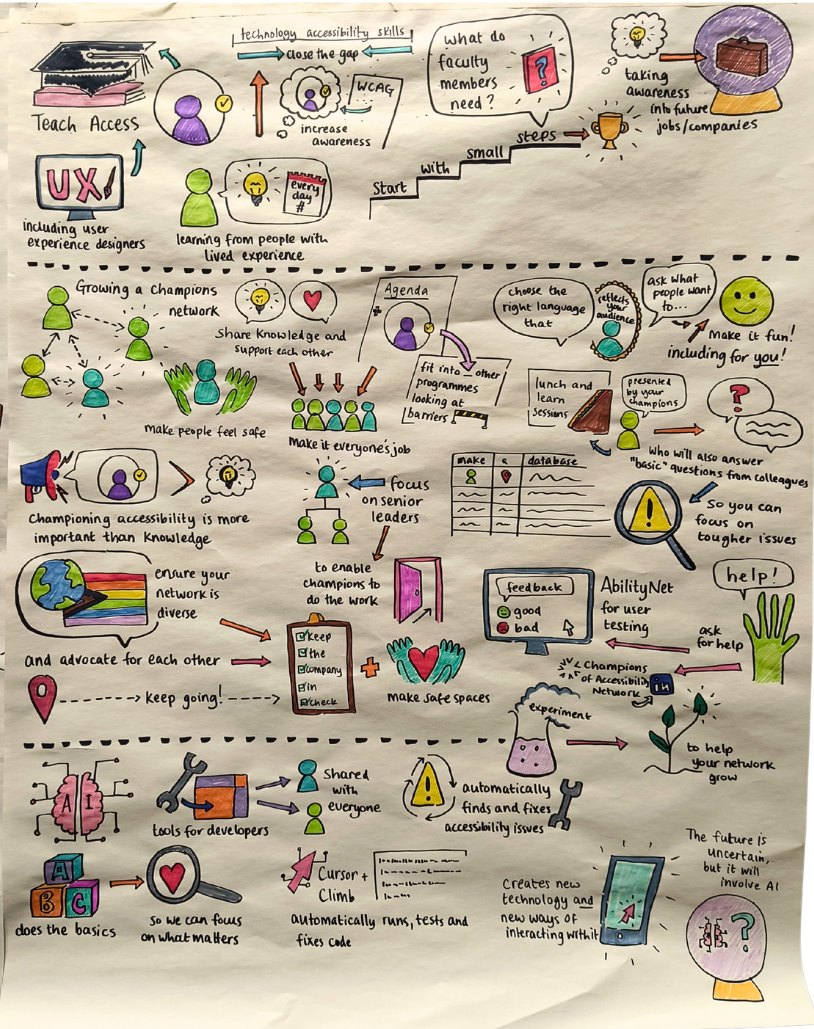 technology accessibility skills
close the gap
Teach Access
WCAG
increase
awareness
what do
faculty
members
need?
?
taking
awareness
into future
jobs/companies
Start
with
small
steps
UX
including user
experience designers
every
day
#
learning from people with
lived experience
Growing a champions
network
Share Knowledge and
support each other
make people feel safe
Make it everyone's job
Agenda
fit into _ other
programmes
looking at
barriers
choose the
right language
that
reflects
your
audience
ask what
people want
to...
Make it fun!
including for you!
lunch and
learn
sessions
presented
by your
champions
?
who will also answer
"basic" questions from colleagues
Championing accessibility is more
important than Knowledge
>
focus
on senior
leaders
to enable
champions to
do the work
make a database
!
So you can
focus on
tougher issues
ensure your
network is
diverse
and advocate for each other
keep going!
keep
the
company
in
check
+
make safe spaces
feedback
good
bad
AbilityNet
for user
testing
help!
ask
for help
Champions
of Accessibility
Network
in
experiment
to help
your network
grow
AI
tools for developers
Shared
with
everyone
!
automatically
finds and fixes
accessibility issues
A
B C
does the basics
so we can focus
on what matters
Cursor +
Climb
automatically runs, tests and
fixes code
Creates new
technology and
new ways of
interacting with it
The future is
uncertain,
but it will
involve AI
?